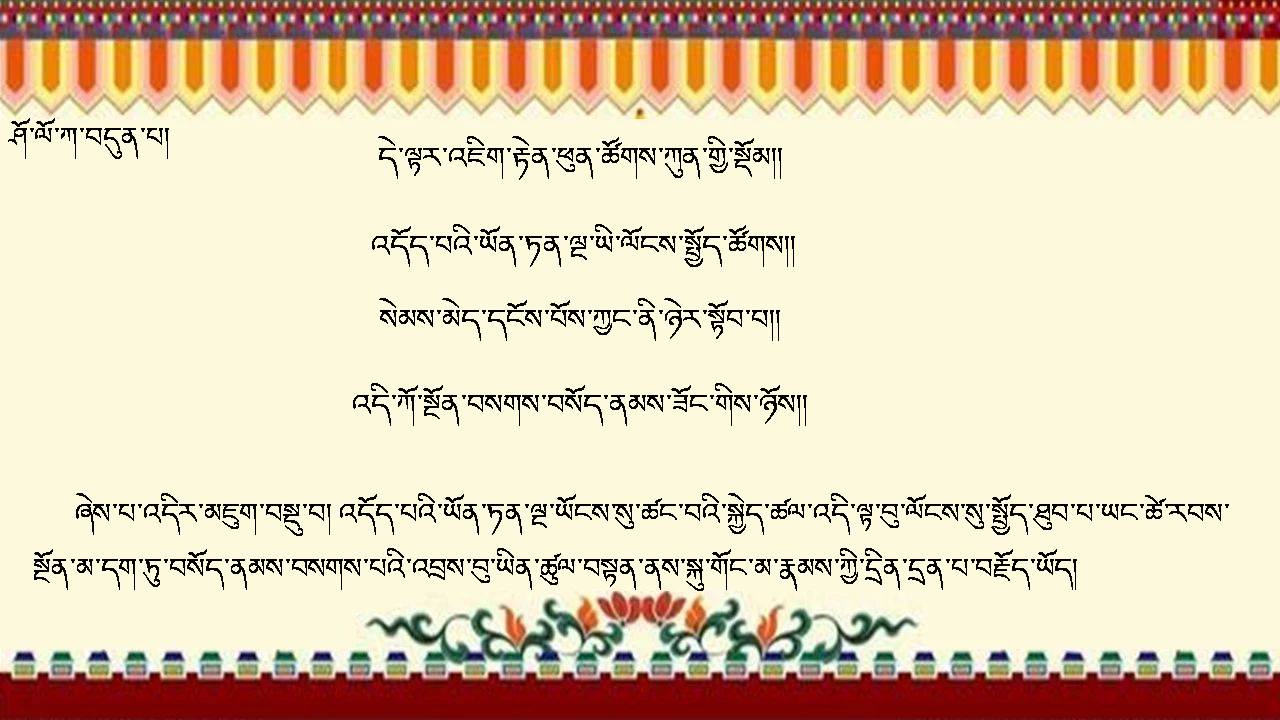 ཤོ་ལོ་ཀ་བདུན་པ།
དེ་ལྟར་འཇིག་རྟེན་ཕུན་ཚོགས་ཀུན་གྱི་སྡོམ།།
འདོད་པའི་ཡོན་ཏན་ལྔ་ཡི་ལོངས་སྤྱོད་ཚོགས།།
སེམས་མེད་དངོས་པོས་ཀྱང་ནི་ཉེར་སྟོབ་པ།།
འདི་ཀོ་སྔོན་བསགས་བསོད་ནམས་ཟོང་གིས་ཉོས།།
ཞེས་པ་འདིར་མཇུག་བསྡུ་བ། འདོད་པའི་ཡོན་ཏན་ལྔ་ཡོངས་སུ་ཚང་བའི་སྐྱེད་ཚལ་འདི་ལྟ་བུ་ལོངས་སུ་སྤྱོད་ཐུབ་པ་ཡང་ཚེ་རབས་
སྔོན་མ་དག་ཏུ་བསོད་ནམས་བསགས་པའི་འབྲས་བུ་ཡིན་ཚུལ་བསྟན་ནས་སྐུ་གོང་མ་རྣམས་ཀྱི་དྲིན་དྲན་པ་བརྗོད་ཡོད།